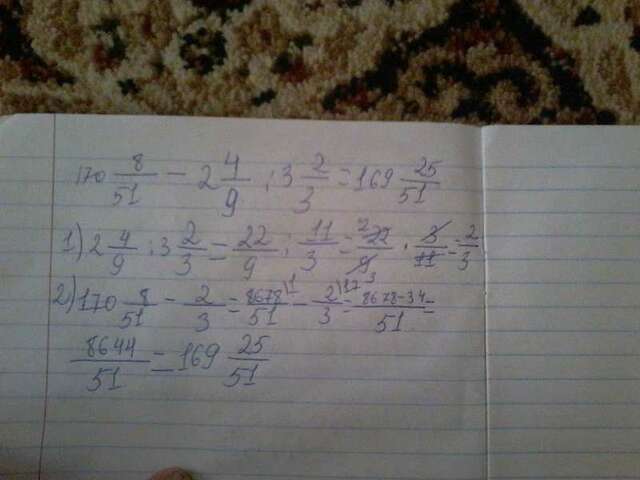 170 8/51 - 2 4/9 : 3 2/3 = 169 25/51
1) 2 4/9 : 3 2/3 = 22/9 : 11/3 = 22/9 · 3/11 = 2/3
2) 170 8/51 - 2/3 = 8678/51 - 2/3 = 8678-34/51 =
8644/51 = 169 25/51